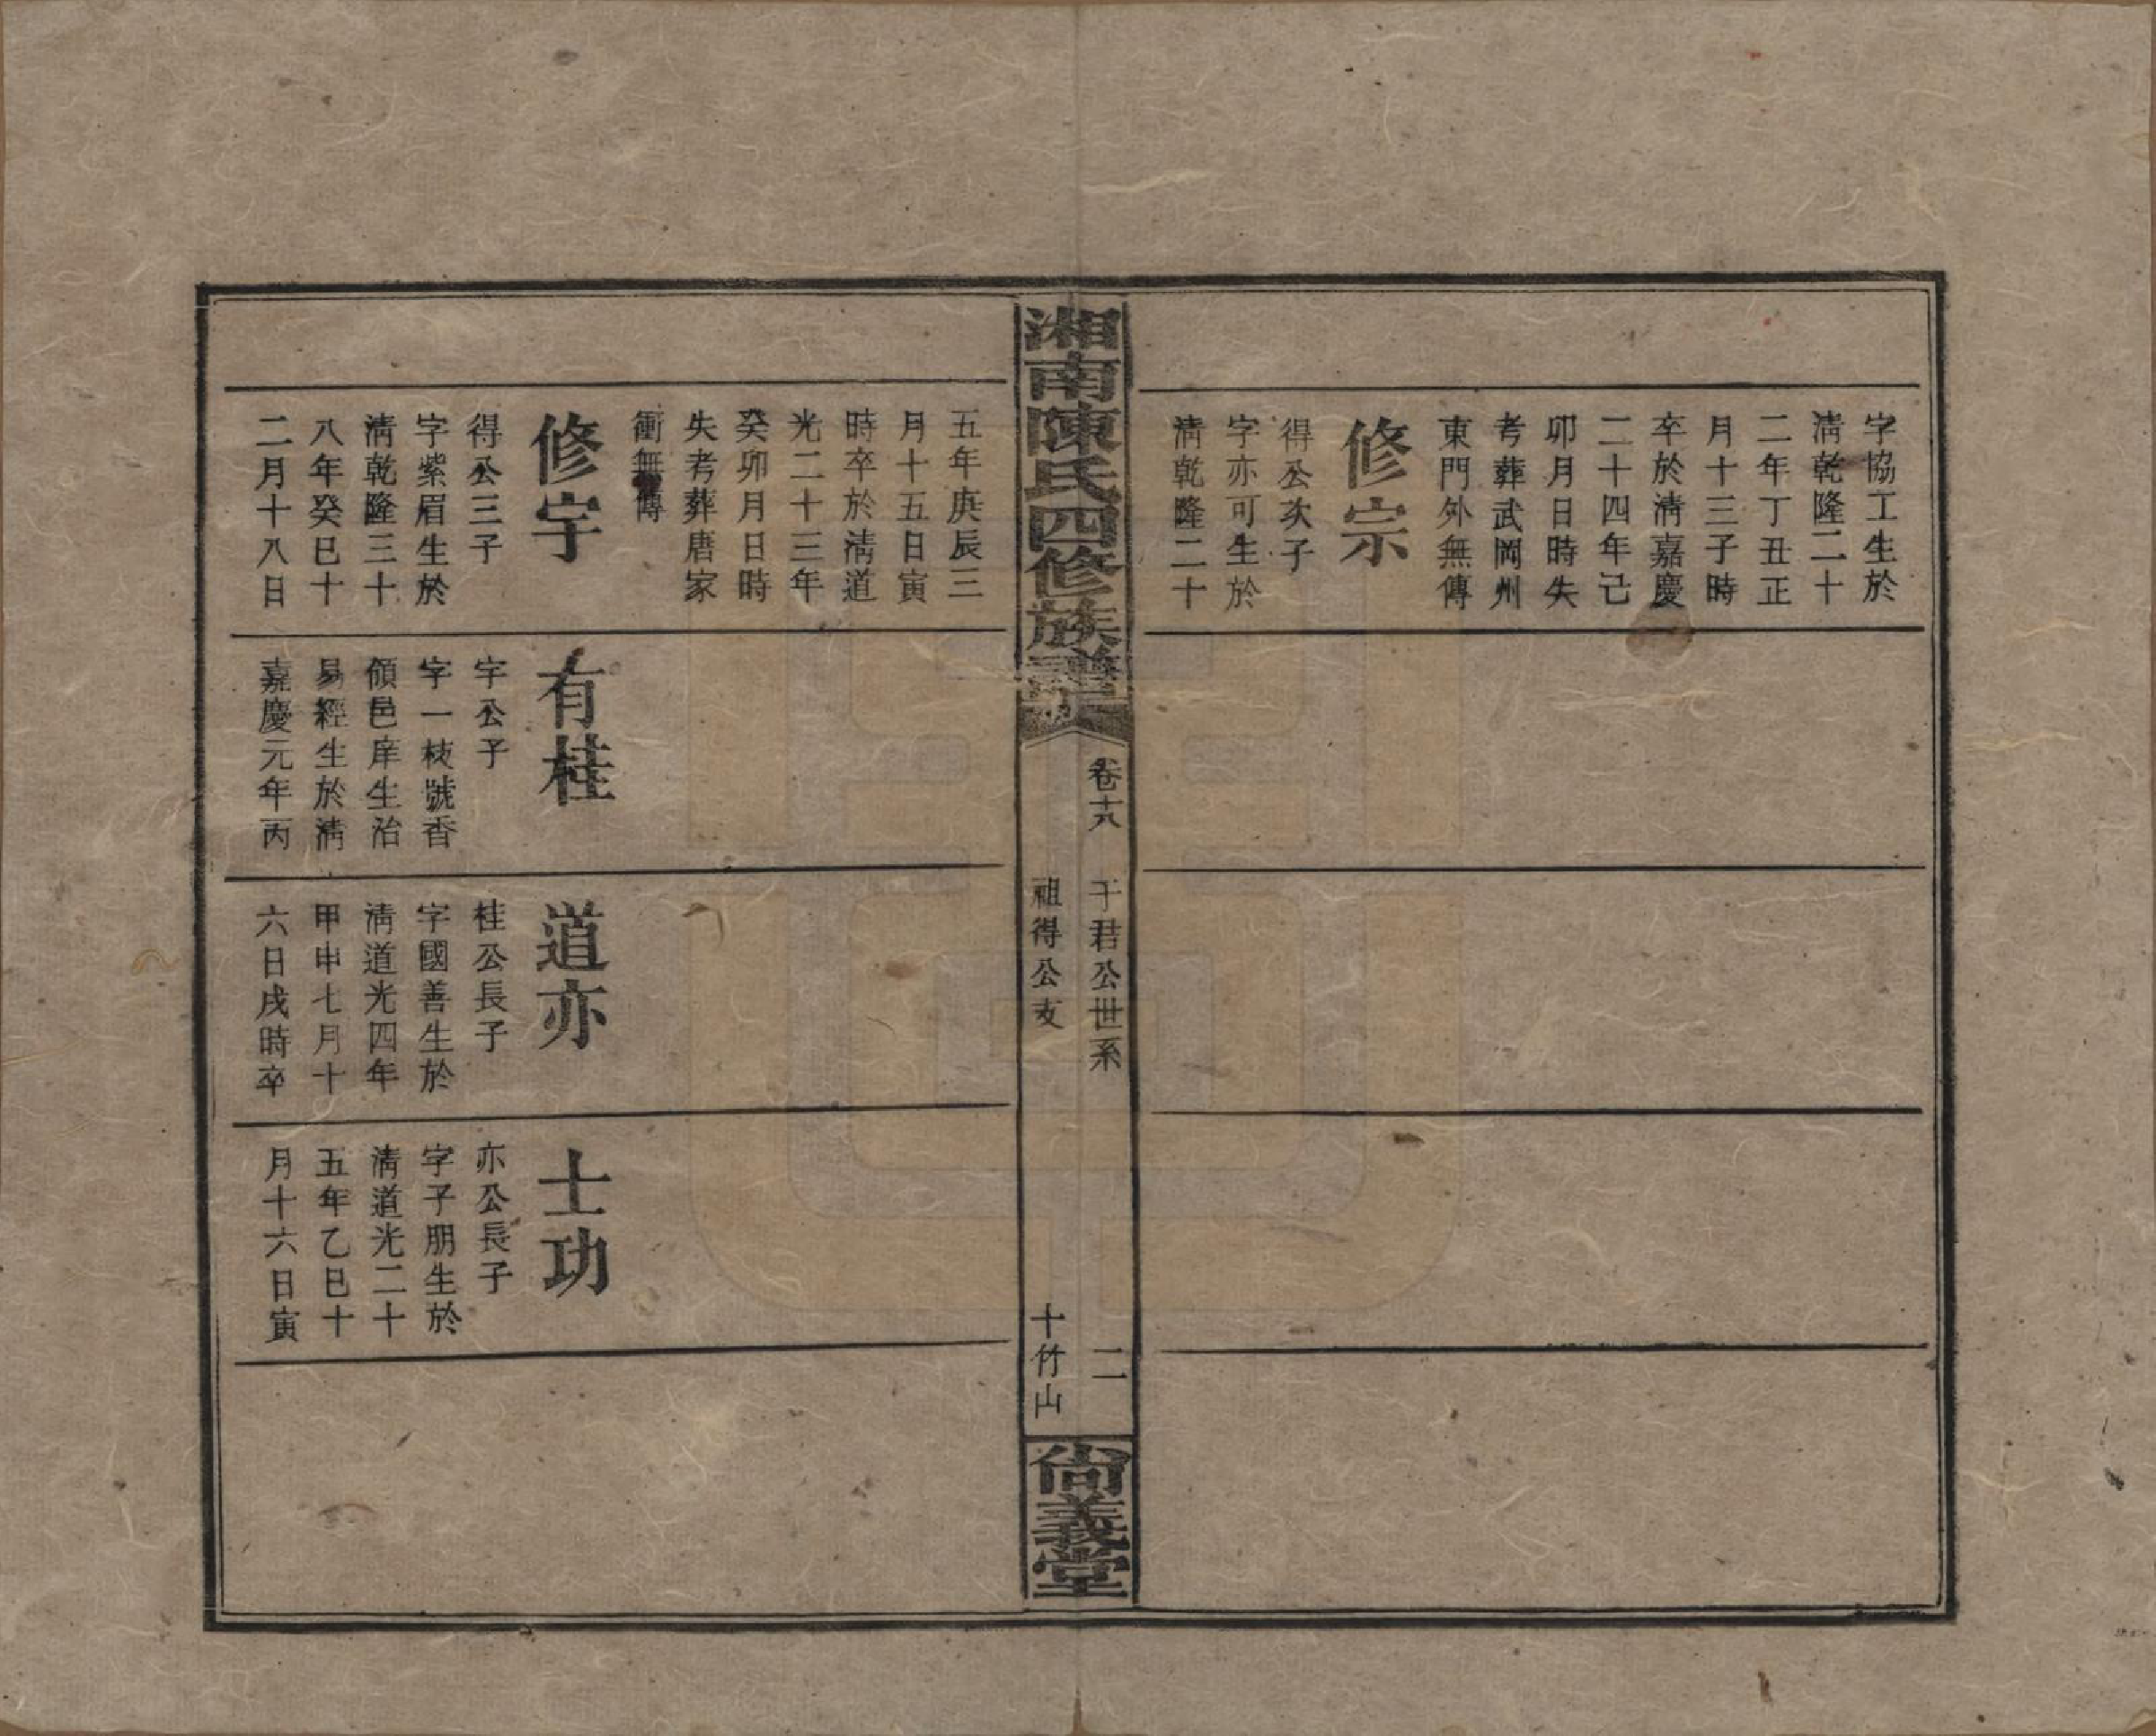 字協工生於
清乾隆二十
二年丁丑正
月十三子時
卒於清嘉慶
二十四年己
卯月日時失
考葬武岡州
東門外無傳
修宗
得公次子
字亦可生於
清乾隆二十
湘南陳氏四修族譜
卷十八
千君公世系
二
祖得公支
十竹山
尙義堂
五年庚辰三
月十五日寅
時卒於清道
光二十三年
癸卯月日時
失考葬唐家
衝無傳
修字
得公三子
字紫眉生於
清乾隆三十
八年癸巳十
二月十八日
有桂
字公子
字一枝號香
領邑庠生治
易經生於清
嘉慶元年丙
道亦
桂公長子
字國善生於
清道光四年
甲申七月十
六日戌時卒
士功
亦公長子
字子朋生於
清道光二十
五年乙巳十
月十六日寅